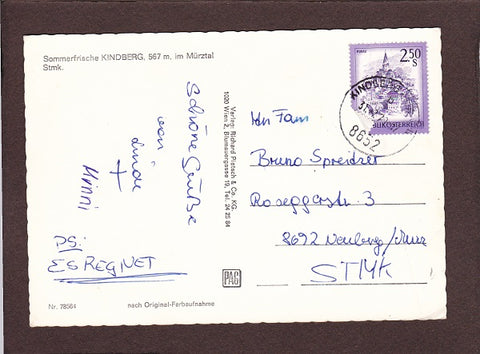 Sommerfrische KINDBERG, 567 m, im Mürztal
Stmk.
Schöne Grüße
von
+
Minni
PS:
ES REGNET
Nr. 78564
nach Original-Farbaufnahme
Verlag: Richard Pietsch & Co. KG.
1020 Wien 2, Blumauergasse 19, Tel. 24 25 84
PAG
2.50
S
REPUBLIK ÖSTERREICH
KINDBERG
8652
Fam
Bruno Spreitzer
Roseggerstr. 3
8692 Neuberg/Mürz
STMK